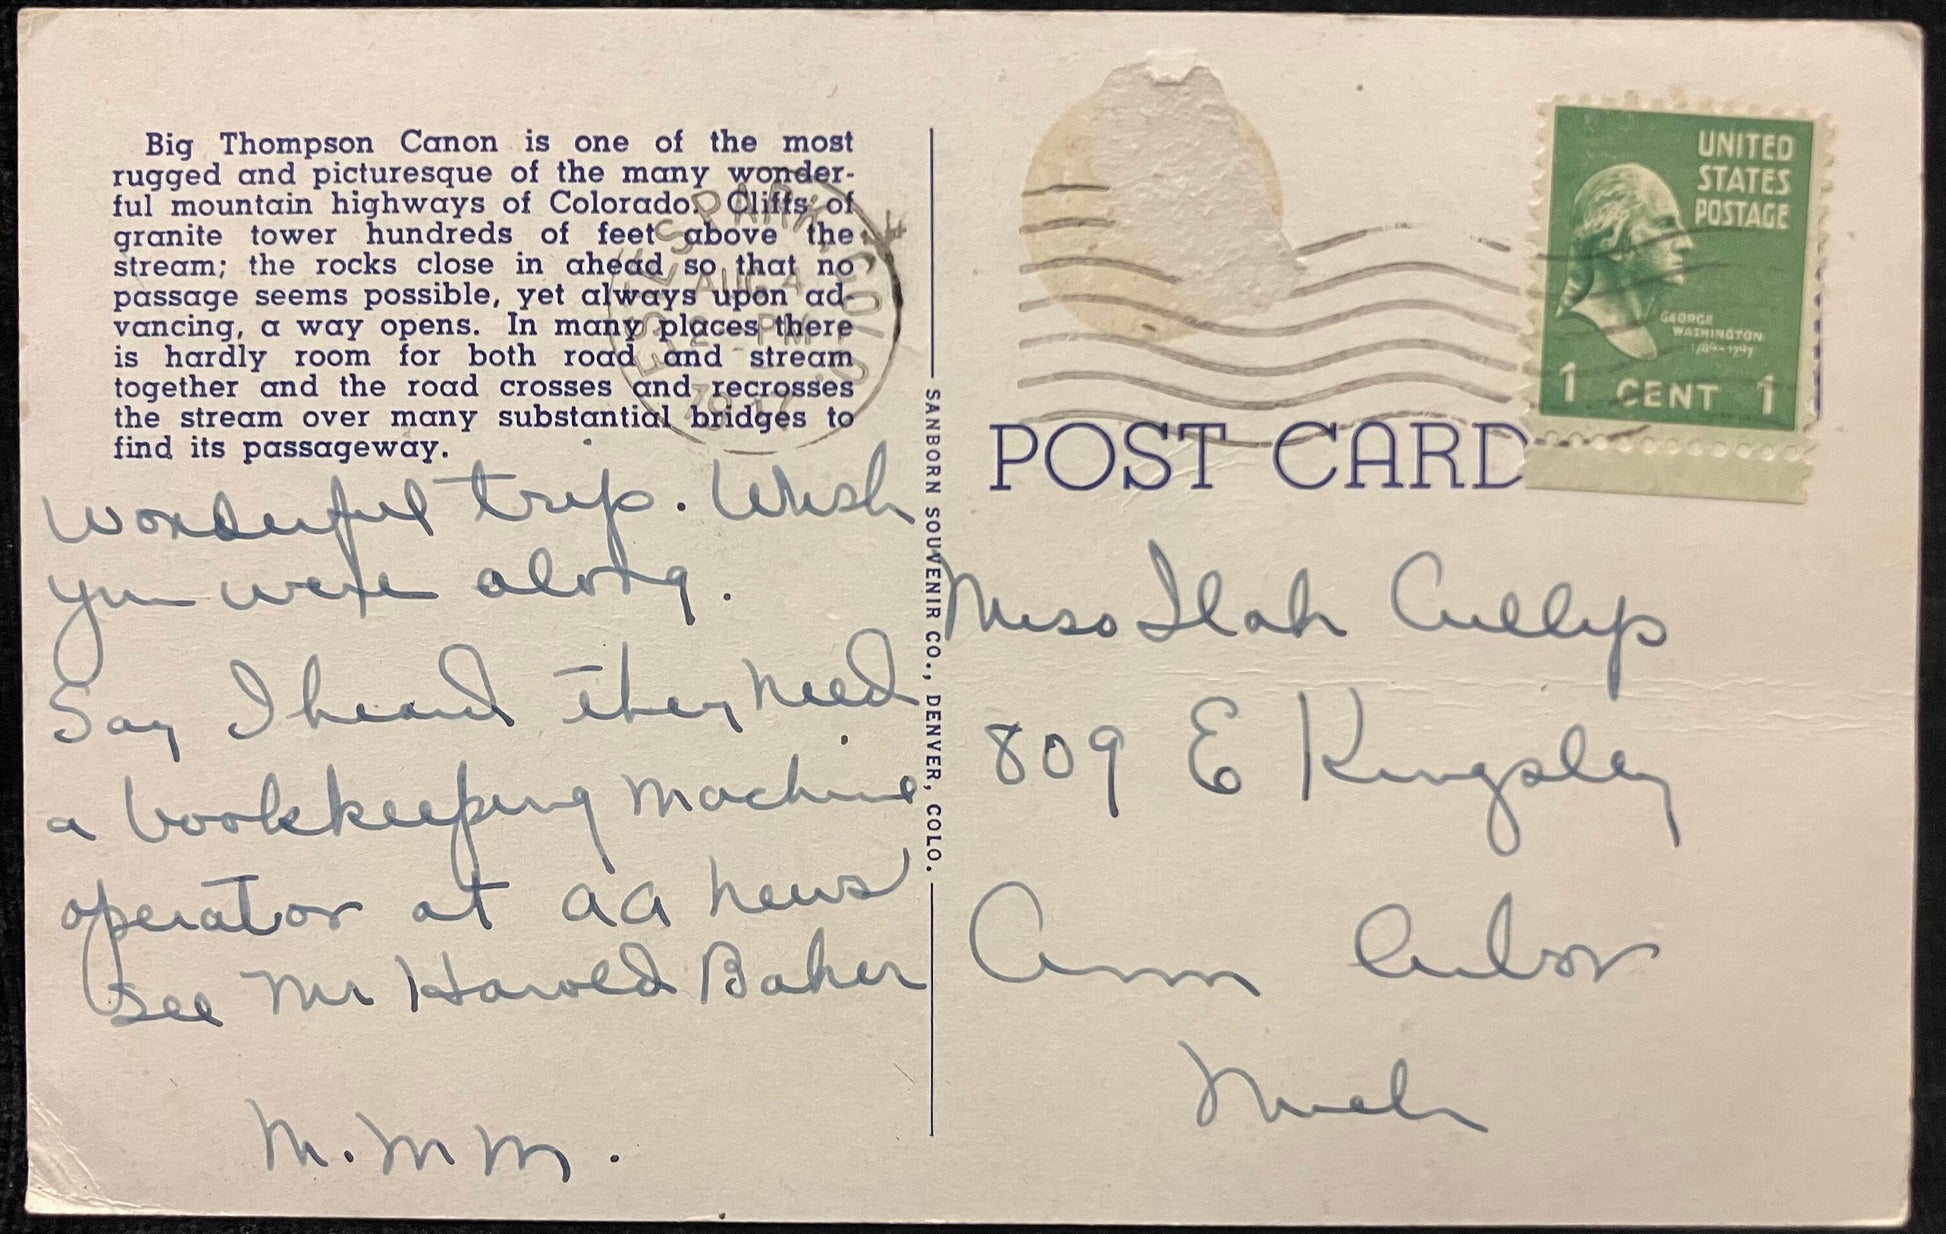 Big Thompson Canon is one of the most
rugged and picturesque of the many wonder-
ful mountain highways of Colorado. Cliffs of
granite tower hundreds of feet above the
stream; the rocks close in ahead so that no
passage seems possible, yet always upon ad-
vancing, a way opens. In many places there
is hardly room for both road and stream
together and the road crosses and recrosses
the stream over many substantial bridges to
find its passageway.
Wonderful trip. Wish
you were along.
Say I heard they need
a bookkeeping machine
operator at aa news
see Mr Harold Baker
M. M M.
SANBORN SOUVENIR CO., DENVER, COLO.
ESTES PARK COLO
AUG 4
2 PM
UNITED
STATES
POSTAGE
GEORGE
WASHINGTON
1789-1797
1 CENT 1
POST CARD
Miss Ilah Cullip
809 E Kingsley
Ann Arbor
Mich